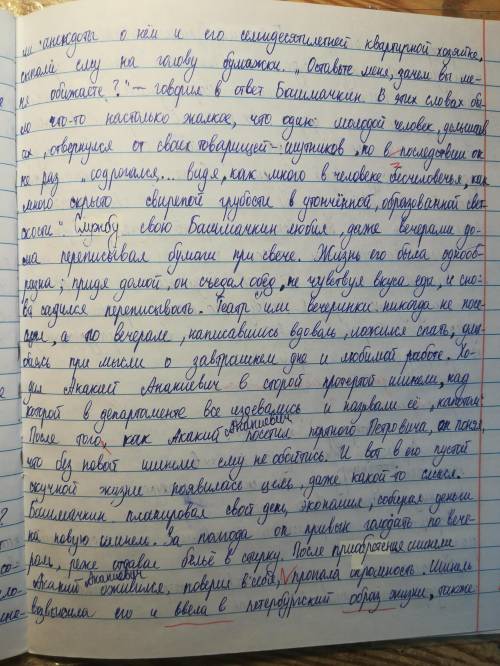 ли анекдоты о нём и его семидесятилетней квартирной хозяйке,
сыпали ему на голову бумажки. „Оставьте меня, зачем вы ме-
ня обижаете?" – говорил в ответ Башмачкин. В этих словах бы-
ло что-то настолько жалкое, что один молодой человек, услышав
их, отвернулся от своих товарищей-шутников, но в последствии он
не раз „содрогался... видя, как много в человеке бесчеловечья, как
много скрыто свирепой грубости в утончённой, образованной свет-
скости". Службу свою Башмачкин любил, даже вечерами до-
ма переписывал бумаги при свече. Жизнь его была однооб-
разна; придя домой, он съедал обед, не чувствуя вкуса еды, и сно-
ва садился переписывать. Театр или вечеринки никогда не посе-
щал, а по вечерам, написавшись вдоволь, ложился спать, улы-
баясь при мысли о завтрашнем дне и любимой работе. Хо-
дил Акакий Акакиевич в старой протертой шинели, над
которой в департаменте все издевались и назвали её „капотом".
После того, как Акакий Акакиевич посетил портного Петровича, он понял,
что без новой шинели ему не обойтись. И вот в его пустой
скучной жизни появилась цель, даже какой-то смысл.
Башмачкин планировал свой день, экономил, собирал деньги
на новую шинель. За полгода он привык голодать по вече-
рам, реже отдавал бельё в стирку. После приобретения шинели
Акакий Акакиевич оживился, поверил в себя, пропала скромность. Шинель
возвысила его и ввела в петербургский образ жизни, также